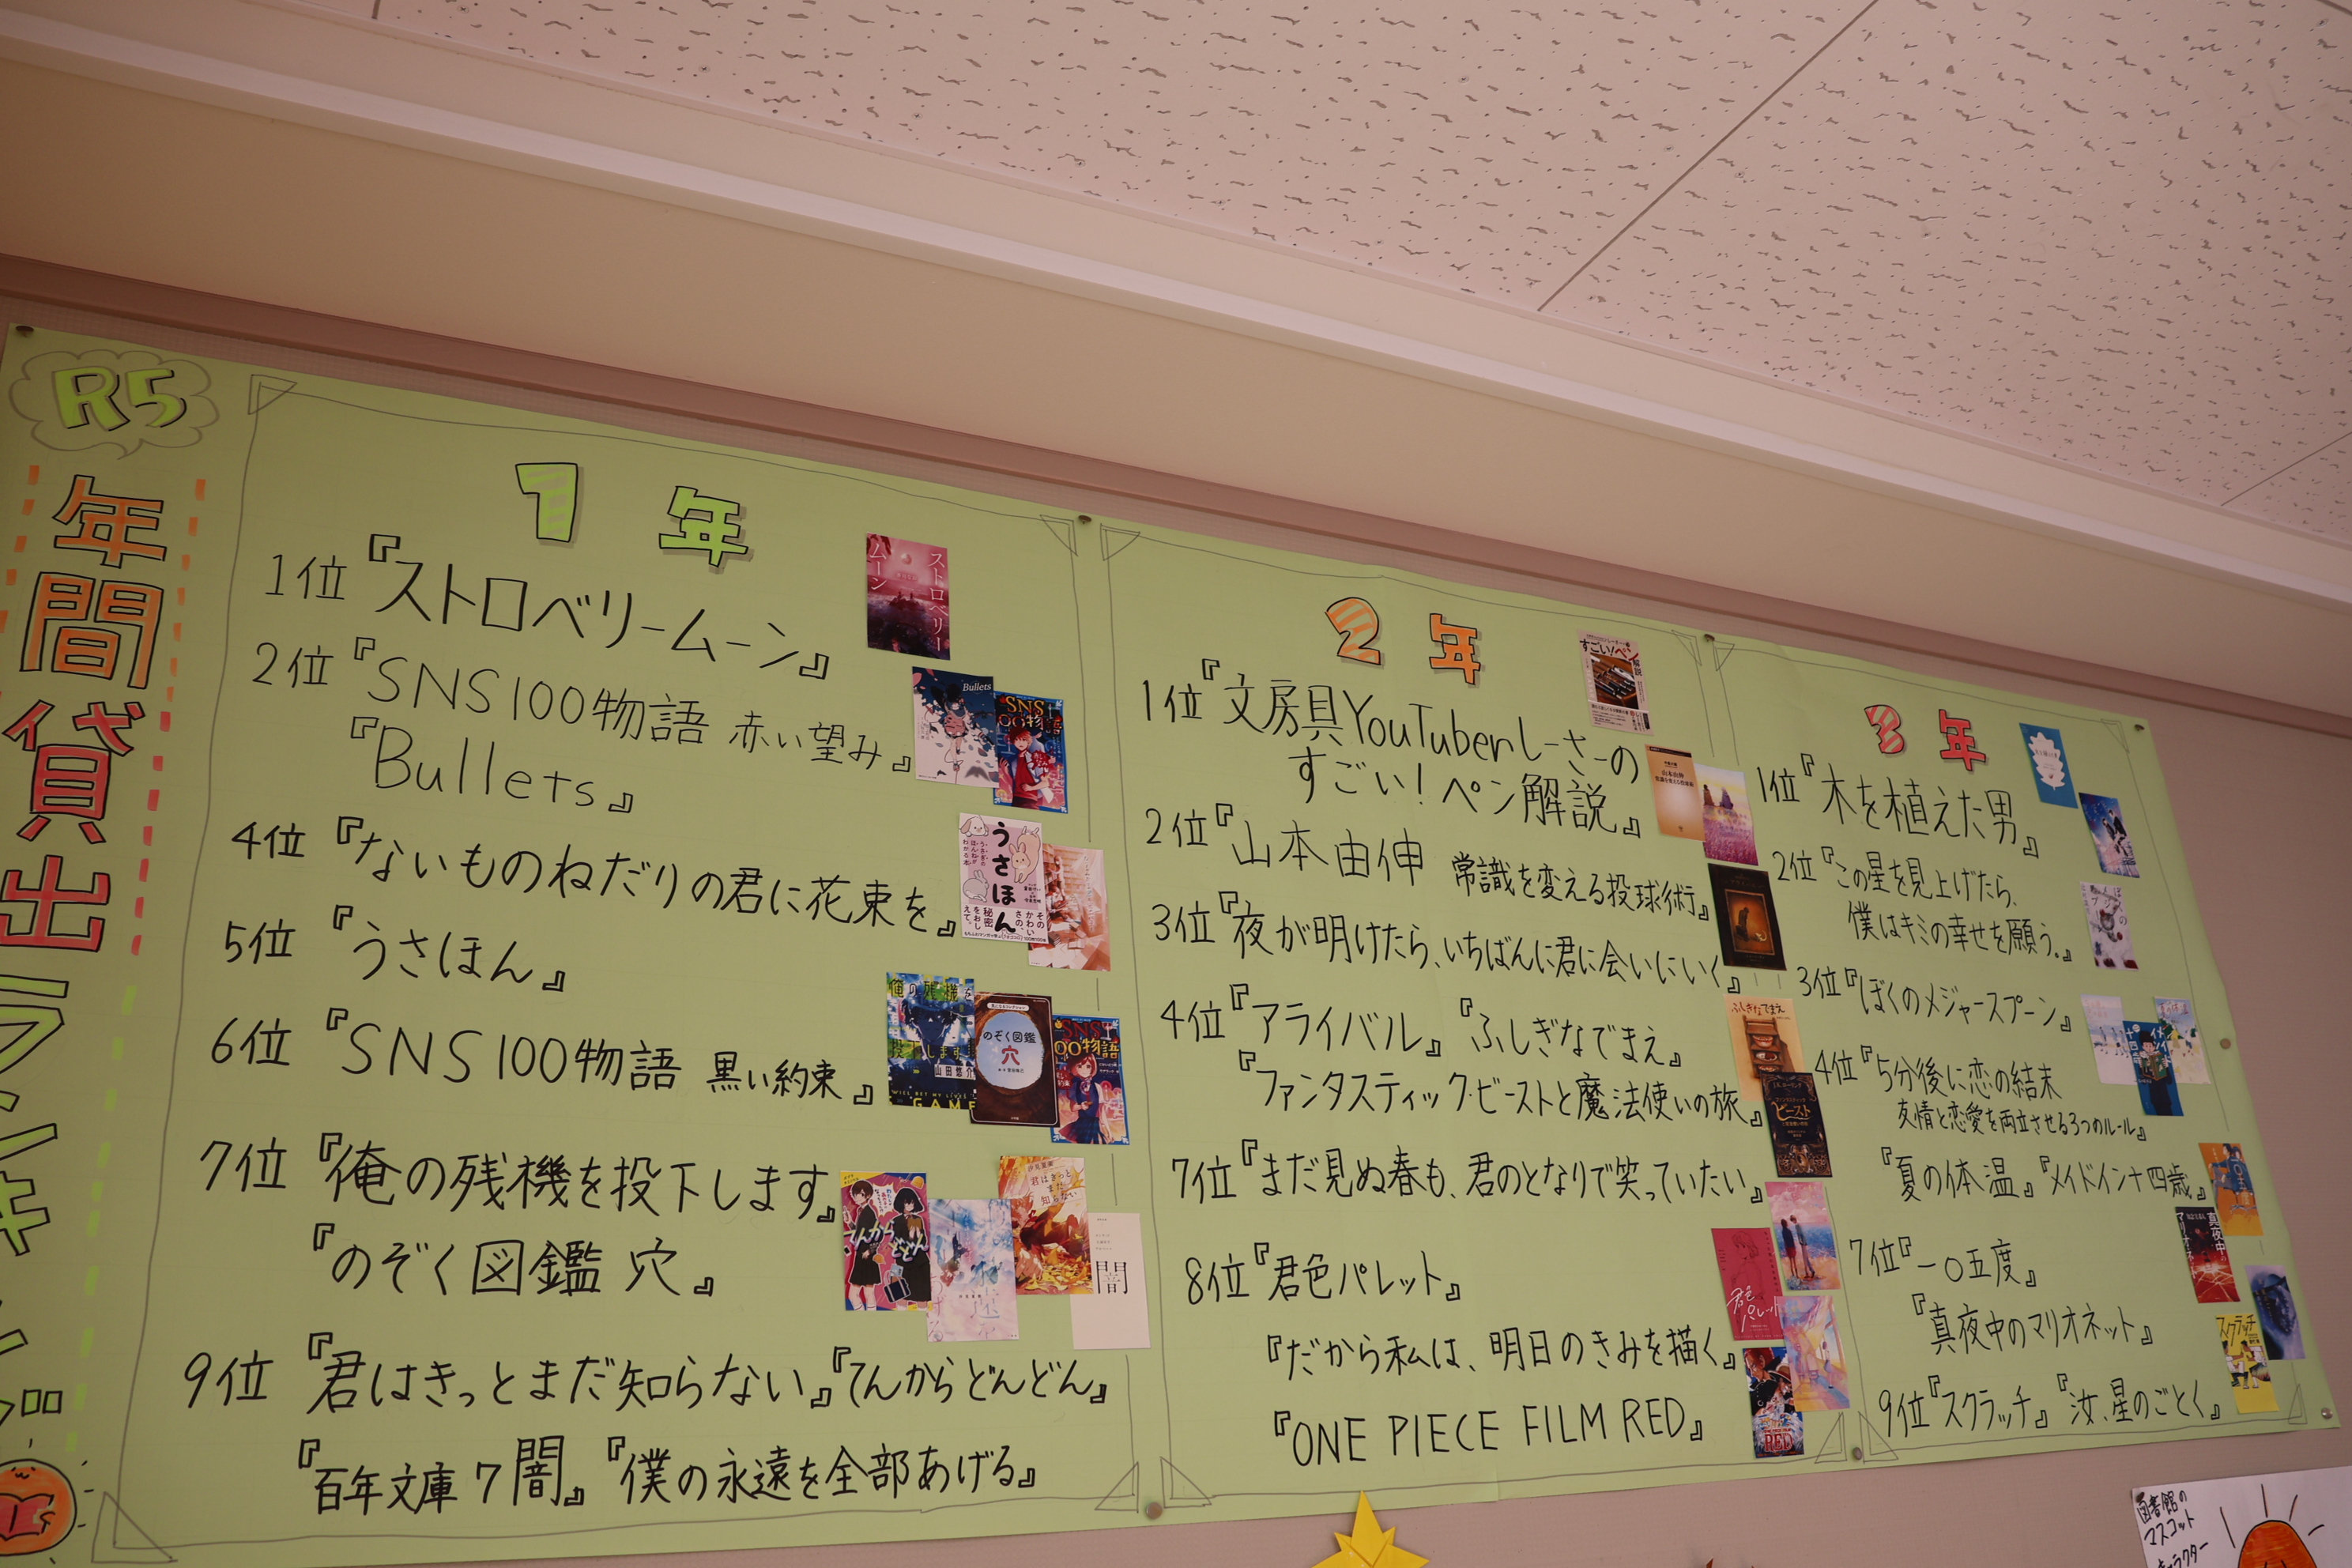 R5
年間貸出ランキング
1年
1位『ストロベリームーン』
2位『SNS100物語 赤い望み』
『Bullets』
4位『ないものねだりの君に花束を』
5位『うさほん』
6位『SNS100物語 黒い約束』
7位『俺の残機を投下します』
『のぞく図鑑 穴』
9位『君はきっとまだ知らない』『てんからどんどん』
『百年文庫 7 闇』『僕の永遠を全部あげる』
ストロベリー
ムーン
Bullets
SNS
100物語
うさほん
俺の残機を
投下します
山田悠介
GAME
のぞく図鑑
穴
SNS
100物語
てんからどんどん
君はきっと
まだ
知らない
闇
2年
1位『文房具YouTuberしーさーの
すごい!ペン解説』
2位『山本由伸 常識を変える投球術』
3位『夜が明けたら、いちばんに君に会いにいく』
4位『アライバル』『ふしぎなでまえ』
『ファンタスティック・ビーストと魔法使いの旅』
7位『まだ見ぬ春も、君のとなりで笑っていたい』
8位『君色パレット』
『だから私は、明日のきみを描く』
『ONE PIECE FILM RED』
すごい!ペン解説
山本由伸
ふしぎなでまえ
ビースト
君色
パレット
RED
3年
1位『木を植えた男』
2位『この星を見上げたら、
僕はキミの幸せを願う。』
3位『ぼくのメジャースプーン』
4位『5分後に恋の結末
友情と恋愛を両立させる3つのルール』
『夏の体温』『メイドイン十四歳』
7位『一〇五度』
『真夜中のマリオネット』
9位『スクラッチ』『汝、星のごとく』
真夜中の
マリオネット
スクラッチ
図書館の
マスコット
キャラクター